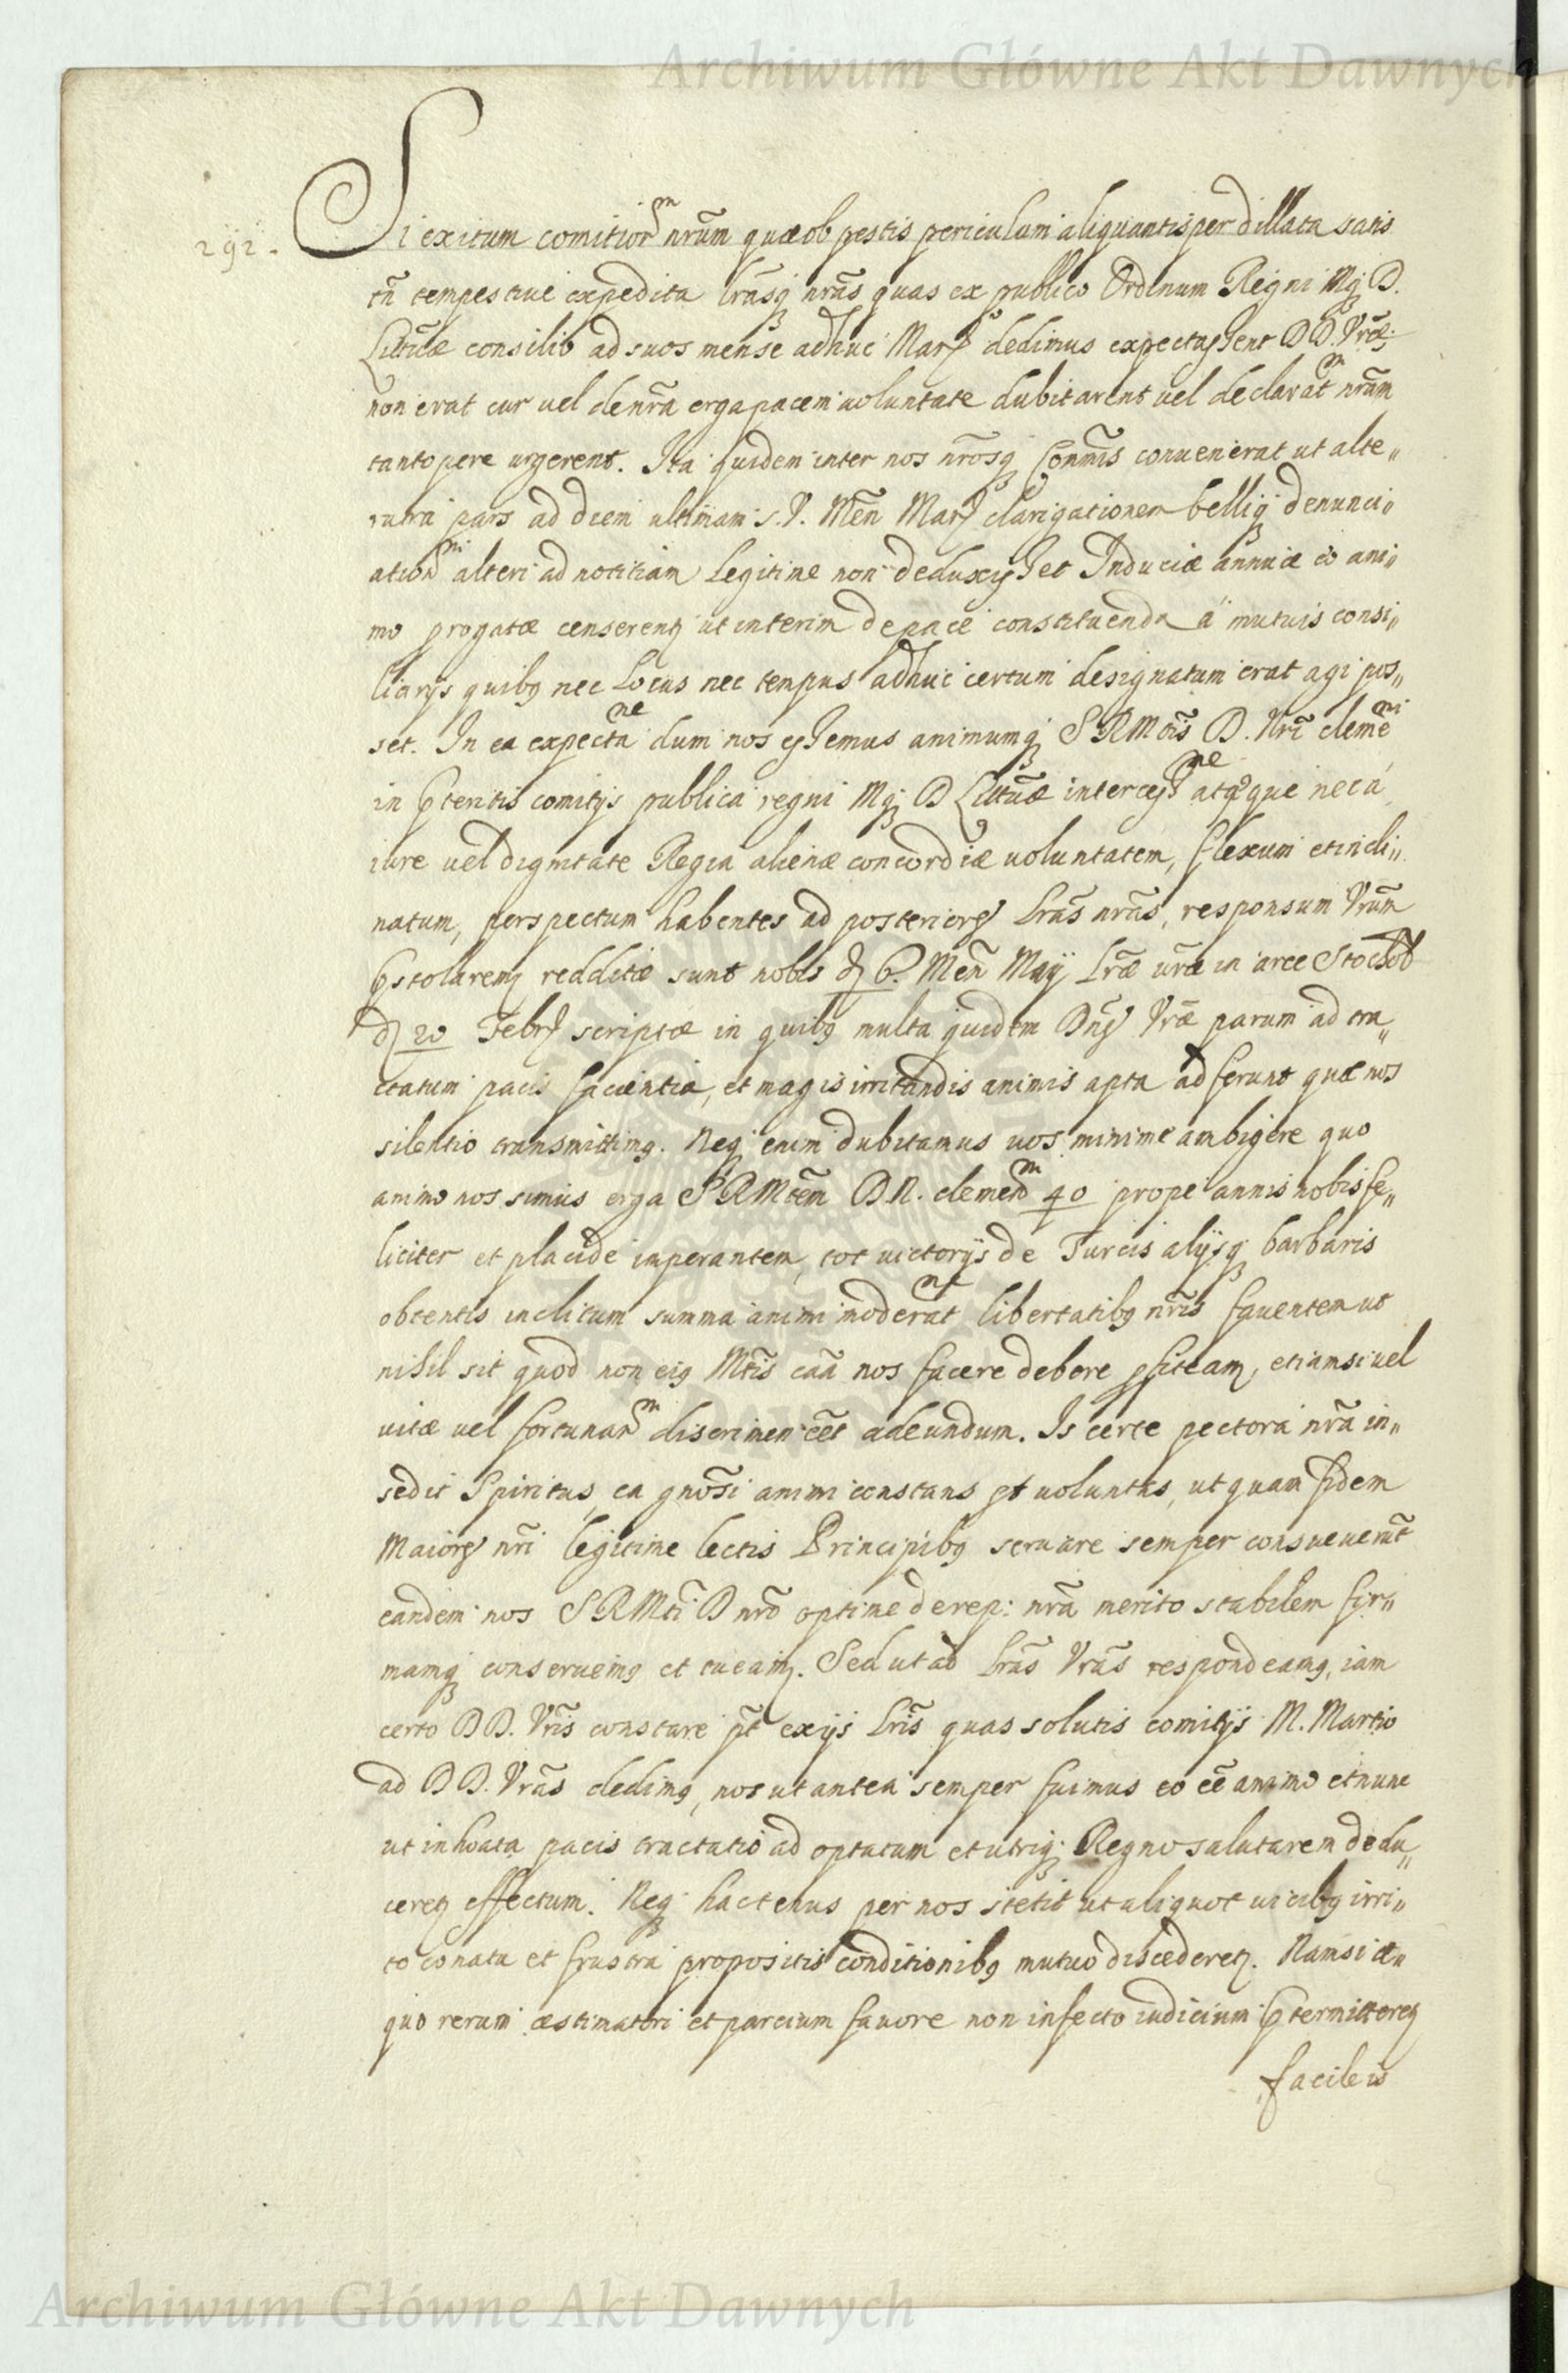 Archiwum Główne Akt Dawnych
292.
Si exitum comitior͠m nrũm quæ ob pestis periculum aliquantisper dillata satis
tñ tempestive expedita Lrãsq nrãs quas ex publico Ordinum Regni Mq D.
Littũæ consilio ad suos mense adhuc Martÿ dedimus expectassent DD. Vræ̃,
non erat cur vel de nrã erga pacem voluntate dubitarent vel declarat͠m nrãm
tantopere urgerent. Ita quidem inter nos nrõsq Commr̃is convenerat ut alte„
rutra pars ad diem ultimam s.V. Meñ Martÿ clarigationem belliq denunci„
ation͠m alteri ad notitiam Legitime non deduxisset Induciæ annuæ eo ani„
mo progatæ censerent̃ ut interim de pace constituenda a mutuis consi„
liarÿs quibq nec Locus nec tempus adhuc certum designatum erat agi pos„
set. In ea expectãne dum nos essemus animumq SRMtĩs D. Nrĩ clemẽni
in pteritis comitÿs publica regni Mq D Littũæ intercessne atq que nec a
iure vel dignitate Regia alienæ concordiæ voluntatem, flexum et incli„
natum, perspectum habentes ad posteriores Lrãs nrãs, responsum Vrũm
pstolaremur redditæ sunt nobis d 6. Meñ Maÿ Lræ̃ vræ̃ in arce Stocholt
d 20 Febrÿ scriptæ in quibq multa quidem Dnẽs Vræ̃ parum ad tra„
ctatum pacis facientia, et magis irritandis animis apta adferunt quæ nos
silentio transmittimq. Neq enim dubitamus vos minime ambigere quo
animo nos simus erga SRMtẽm DN. clemen͠m 40 prope annis nobis fe„
liciter et placide imperantem, tot victorÿs de Turcis alÿsq barbaris
obtentis inclitum summa animi moderat͠ne libertatibq nrĩs faventem ut
nihil sit quod non eiq Mtĩs caã nos facere debere pfiteamur, etiamsi vel
vitæ vel fortunar͠m discrimen eẽt adeundum. Is certe pectora nrã in„
sedit Spiritus, ea gnõsi animi constans est voluntas, ut quam fidem
Maiores nrĩ legitime lectis Principibq servare semper consueverũt
eandem nos SRMtĩ D nrõ optime de rep: nrã merito stabilem fir„
mamq conservemq et tueamur. Sed ut ad Lrãs Vrãs respondeamq, iam
certo DD. Vrĩs constare pt̃ ex ÿs Lrĩs quas solutis comitÿs M. Martio
ad DD. Vrãs dedimq, nos ut antea semper fuimus eo eẽ animo et nunc
ut inhoata pacis tractatio ad optatum et utriq Regno salutarem dedu„
ceretur effectum. Neq hactenus per nos stetit ut aliquot vicibq irri„
to conatu et frustra propositis conditionibq mutuo discederetur. Nam si æ„
quo rerum æstimatori et parcium favore non infecto iudicium ptermitteretur
facile is
Archiwum Główne Akt Dawnych